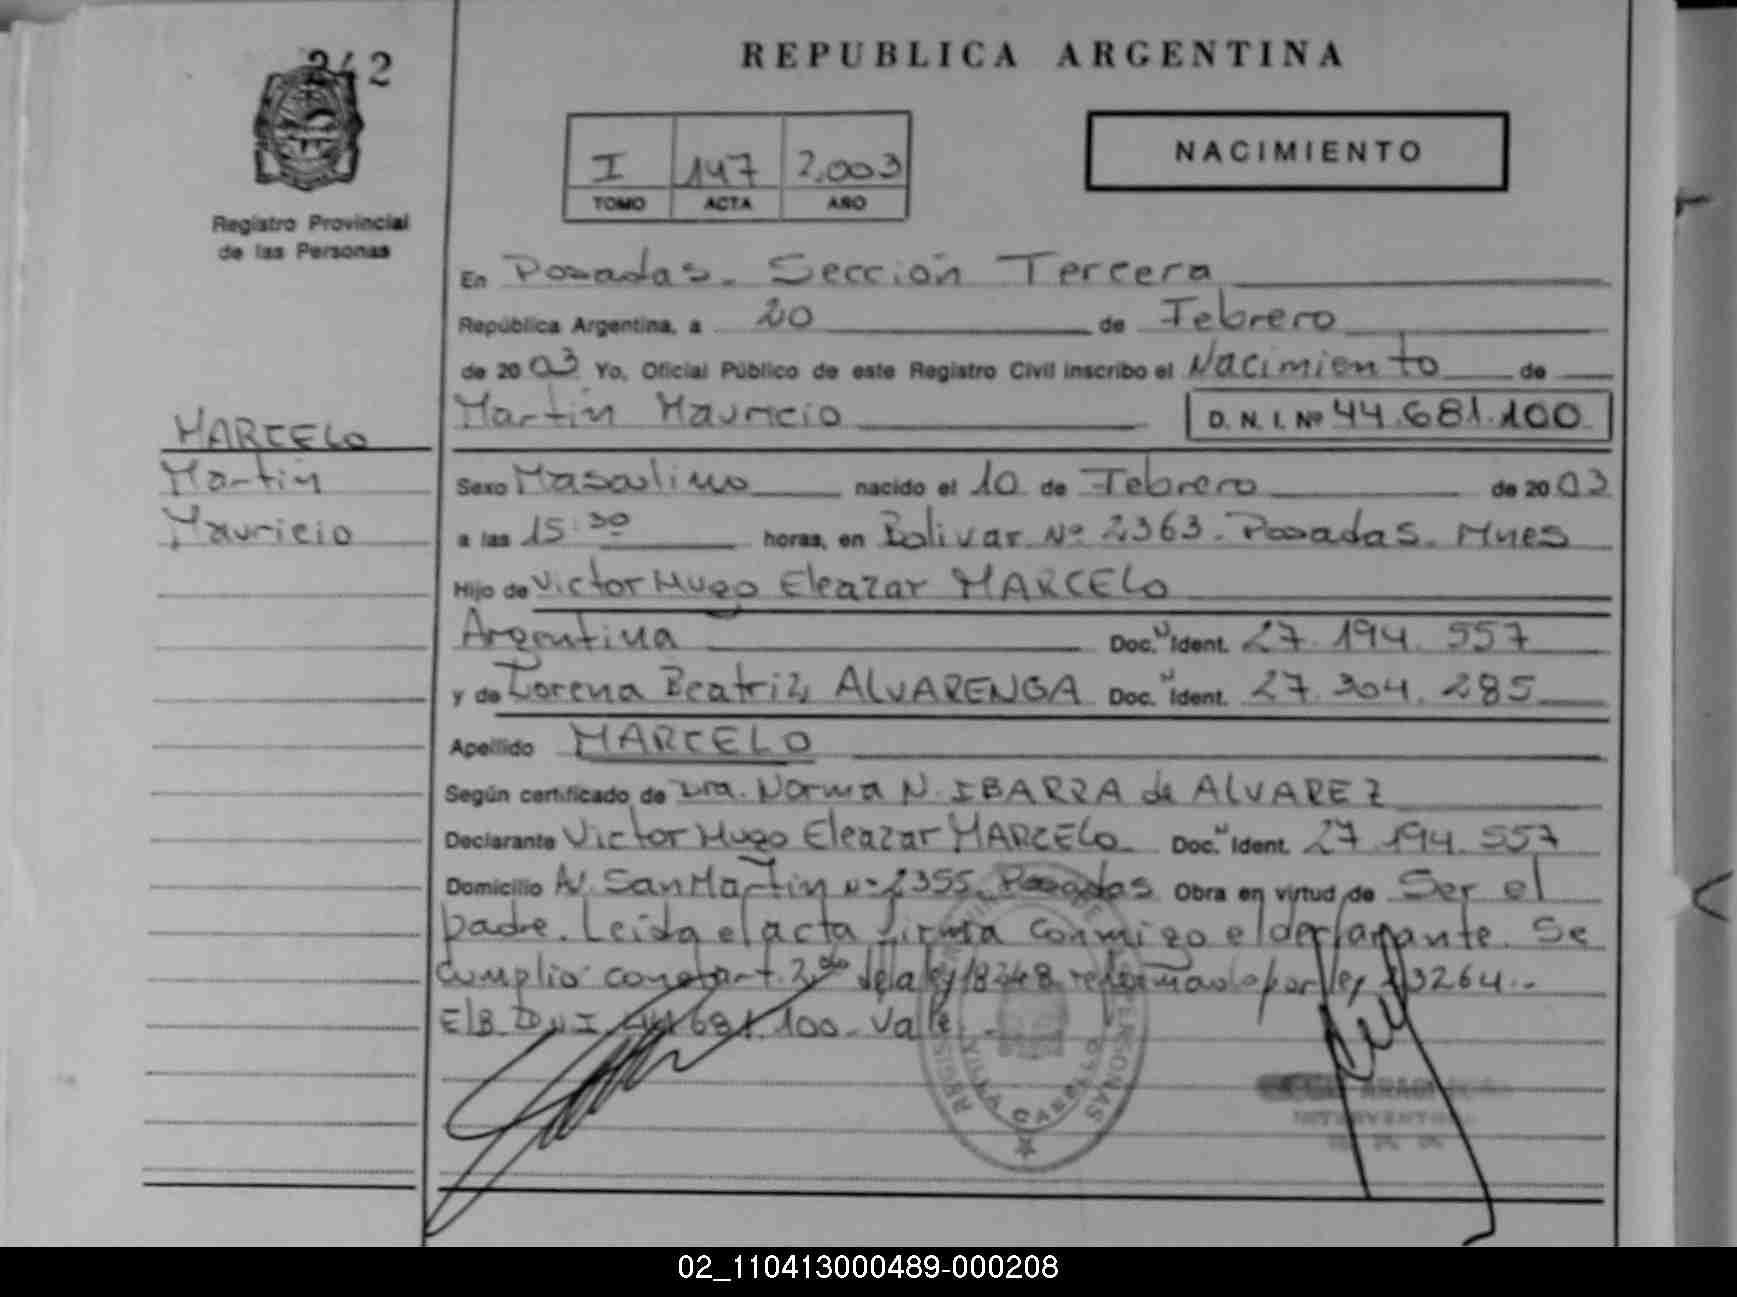 242
REPUBLICA ARGENTINA
I 147 2.003
TOMO ACTA AÑO
NACIMIENTO
Registro Provincial
de las Personas
En Posadas. Sección Tercera
República Argentina, a 20 de Febrero
de 2003 Yo, Oficial Público de este Registro Civil inscribo el Nacimiento de
Martin Mauricio D. N. I. Nº 44.681.100
MARCELO
Martin
Mauricio
Sexo Masculino nacido el 10 de Febrero de 2003
a las 15:30 horas, en Bolivar Nº 2363. Posadas. Mnes
Hijo de Victor Hugo Eleazar MARCELO
Argentina Doc. Ident. 27.194.557
y de Lorena Beatriz ALVARENGA Doc. Ident. 27.304.285
Apellido MARCELO
Según certificado de Dra. Norma N. IBARRA de ALVAREZ
Declarante Victor Hugo Eleazar MARCELO Doc. Ident. 27.194.557
Domicilio Av. San Martin nº 2355. Posadas Obra en virtud de Ser el
padre. Leida el acta firma conmigo el declarante. Se
cumplio con el art. 2do de la ley 18248 reformado por ley 23264.-
El B. DNI 44681.100. Valle.-
VILLA CABELLO
PERSONAS
02_110413000489-000208